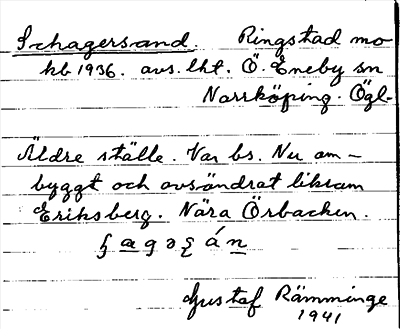 Schagersrand. Ringstad mo
kb 1936. avs. lht. Ö. Eneby sn
Norrköping. Ögl.
Äldre ställe. Var bs. Nu om-
byggt och avsöndrat liksom
Eriksberg. Nära Örbacken.
Gustaf Rämminge
1941